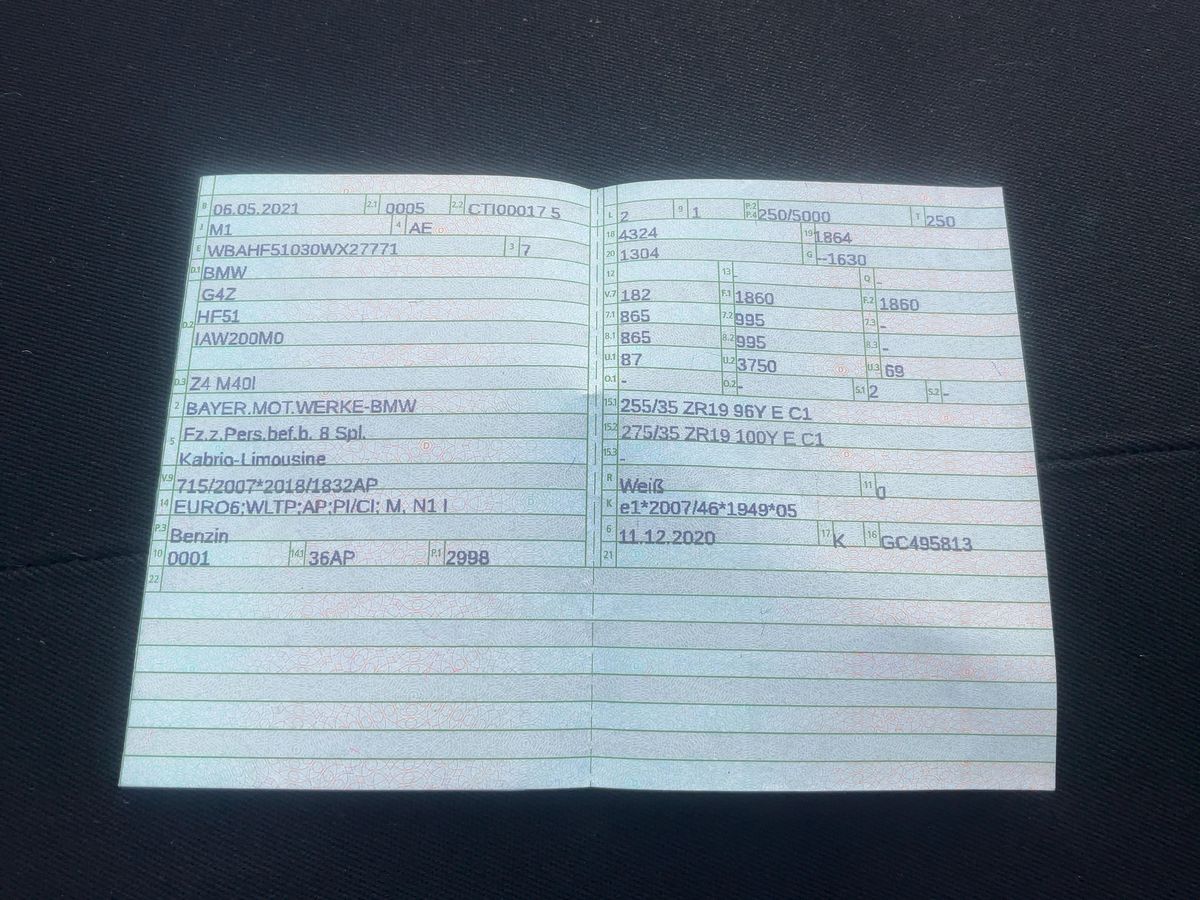 B 06.05.2021 2.1 0005 2.2 CTI00017 5
J M1 4 AE
E WBAHF51030WX27771 3 7
D.1 BMW
D.2 G4Z
HF51
IAW200M0
D.3 Z4 M40I
2 BAYER.MOT.WERKE-BMW
5 Fz.z.Pers.bef.b. 8 Spl.
Kabrio-Limousine
V.9 715/2007*2018/1832AP
14 EURO6;WLTP;AP;PI/CI; M, N1 I
P.3 Benzin
10 0001 14.1 36AP P.1 2998
22
L 2 9 1 P.2 P.4 250/5000 T 250
18 4324 19 1864
20 1304 G --1630
12 13 - Q -
V.7 182 F.1 1860 F.2 1860
7.1 865 7.2 995 7.3 -
8.1 865 8.2 995 8.3 -
U.1 87 U.2 3750 U.3 69
O.1 - O.2 - S.1 2 S.2 -
15.1 255/35 ZR19 96Y E C1
15.2 275/35 ZR19 100Y E C1
15.3 -
R Weiß 11 0
K e1*2007/46*1949*05
6 11.12.2020 17 K 16 GC495813
21